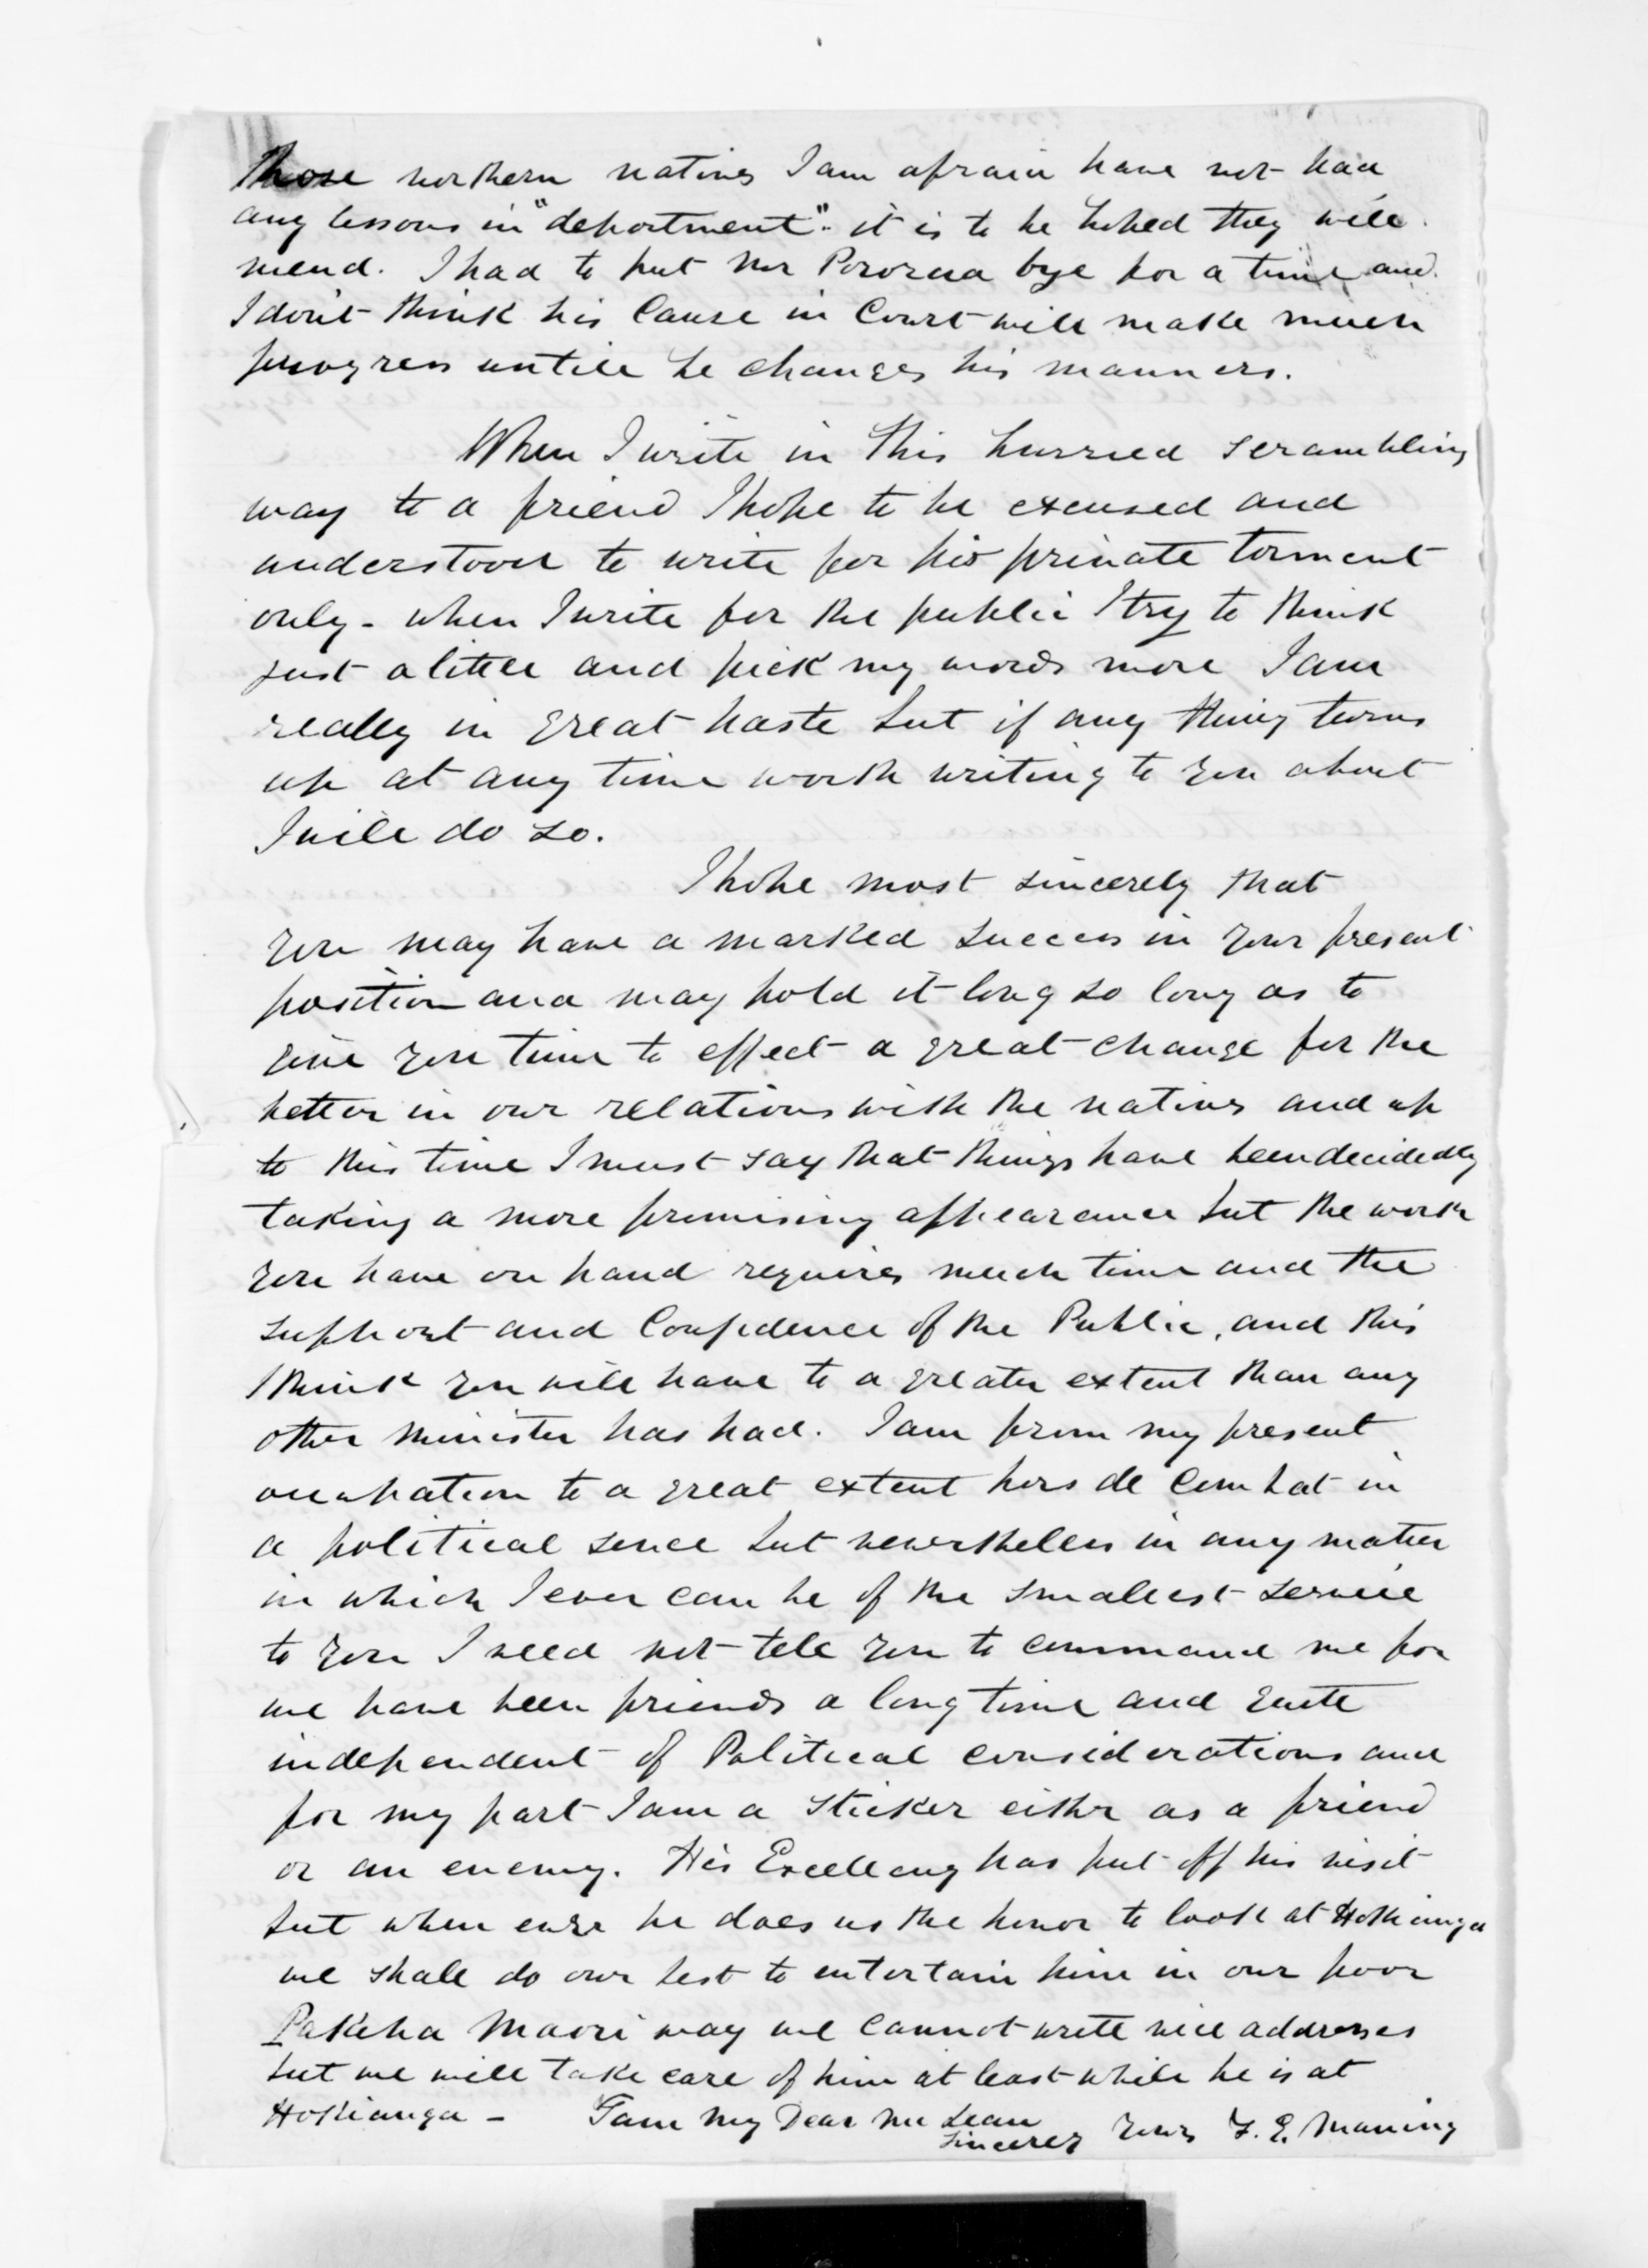 Those northern natives I am afraid have not had
any lessons in "deportment". it is to be hoped they will
mend. I had to put Mr Pororua bye for a time and
I don't think his Cause in Court will make much
progress untill he changes his manners.
When I write in this hurried scrambling
way to a friend I hope to be excused and
understood to write for his private torment
only - when I write for the public I try to think
just a little and pick my words more I am
really in great haste but if any thing turns
up at any time worth writing to you about
I will do so.
I hope most sincerely that
you may have a marked success in your present
position and may hold it long so long as to
give you time to effect a great change for the
better in our relations with the natives and up
to this time I must say that things have been decidedly
taking a more promising appearance but the work
you have on hand requires much time and the
support and Confidence of the Public, and this
I think you will have to a greater extent than any
other minister has had. I am from my present
occupation to a great extent hors de Combat in
a political sence but nevertheless in any matter
in which I ever can be of the smallest service
to you I need not tell you to command me for
we have been friends a long time and quite
independent of Political considerations and
for my part I am a sticker either as a friend
or an enemy. His Excellency has put off his visit
but when ever he does us the honor to look at Hokianga
we shall do our best to entertain him in our poor
Pakeha Maori way we cannot write nice addresses
but we will take care of him at least while he is at
Hokianga - I am My Dear McLean
sincerely Yours F. E. Maning